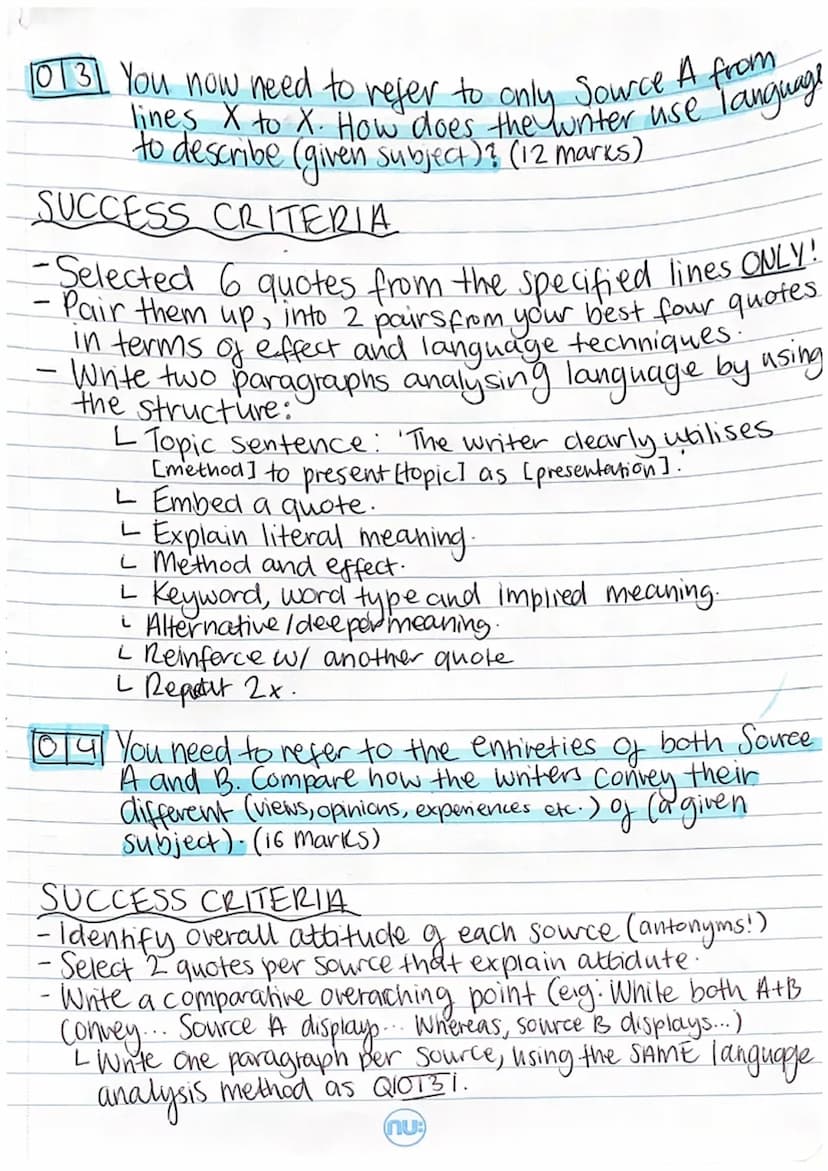 03 You now need to refer to only Source A from
lines X to X. How does the writer use language
to describe (given subject)? (12 marks)
SUCCESS CRITERIA
- Selected 6 quotes from the specified lines ONLY!
- Pair them up, into 2 pairs from your best four quotes
in terms of effect and language techniques.
- Write two paragraphs analysing language by using
the structure:
Topic sentence: 'The writer clearly utilises
[method] to present [topic] as [presentation].'
Embed a quote.
Explain literal meaning.
Method and effect.
Keyword, word type and implied meaning.
Alternative/deeper meaning.
Reinforce w/ another quote
Repeat 2x.
04 You need to refer to the entireties of both Source
A and B. Compare how the writers convey their
different (views, opinions, experiences etc.) of (a given
subject). (16 marks)
SUCCESS CRITERIA
- Identify overall attitude of each source (antonyms!)
- Select 2 quotes per source that explain attidute.
- Write a comparative overaching point (eg: While both A+B
convey... Source A displays... Whereas, source B displays...)
Write one paragraph per source, using the SAME language
analysis method as Q03.
nu: